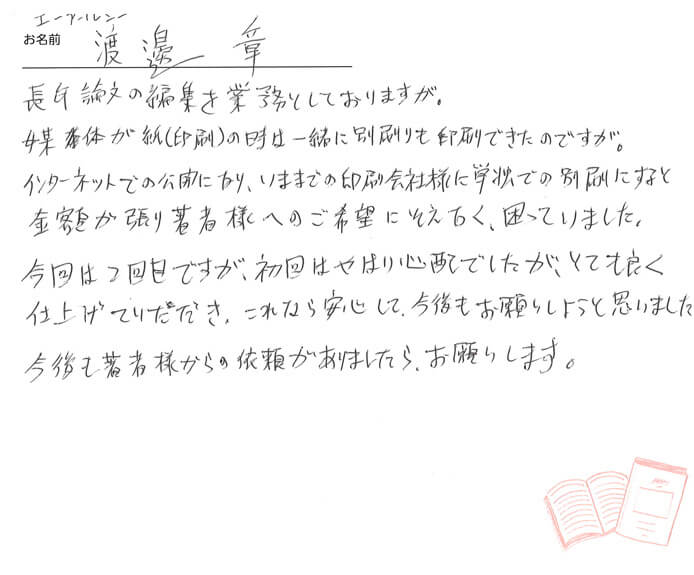 エーアールシー
お名前 渡邉 章
長年論文の編集を業務としておりますが。
媒体が紙(印刷)の時は一緒に別刷りも印刷できたのですが。
インターネットでの公開になり、いままでの印刷会社様に単状での別刷にすると
金額が張り著者様へのご希望にそえなく、困っていました。
今回は2回目ですが、初回はやはり心配でしたが、とても良く
仕上げていただき、これなら安心して、今後もお願いしようと思いました
今後も著者様からの依頼がありましたら、お願いします。